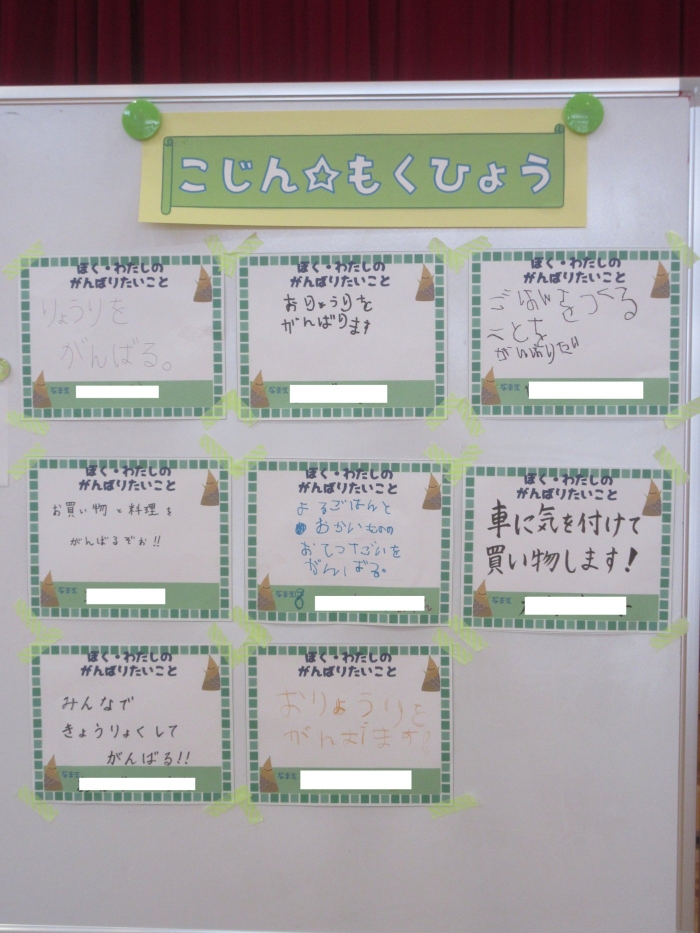 こじん☆もくひょう
ぼく・わたしの
がんばりたいこと
りょうりを
がんばる。
なまえ
ぼく・わたしの
がんばりたいこと
おりょうりを
がんばります
ぼく・わたしの
がんばりたいこと
ごはんをつくる
ことを
がんばりたい
ぼく・わたしの
がんばりたいこと
お買い物と料理を
がんばるぞぉ!!
なまえ
ぼく・わたしの
がんばりたいこと
よるごはんと
おかいものの
おてつだいを
がんばる。
なまえ
ぼく・わたしの
がんばりたいこと
車に気を付けて
買い物します!
なまえ
ぼく・わたしの
がんばりたいこと
みんなで
きょうりょくして
がんばる!!
なまえ
ぼく・わたしの
がんばりたいこと
おりょうりを
がんばります!
なまえ